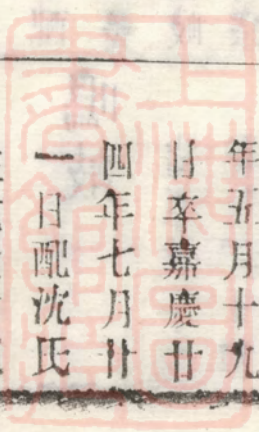 年五月十九
日卒嘉慶廿
四年七月廿
一日配沈氏